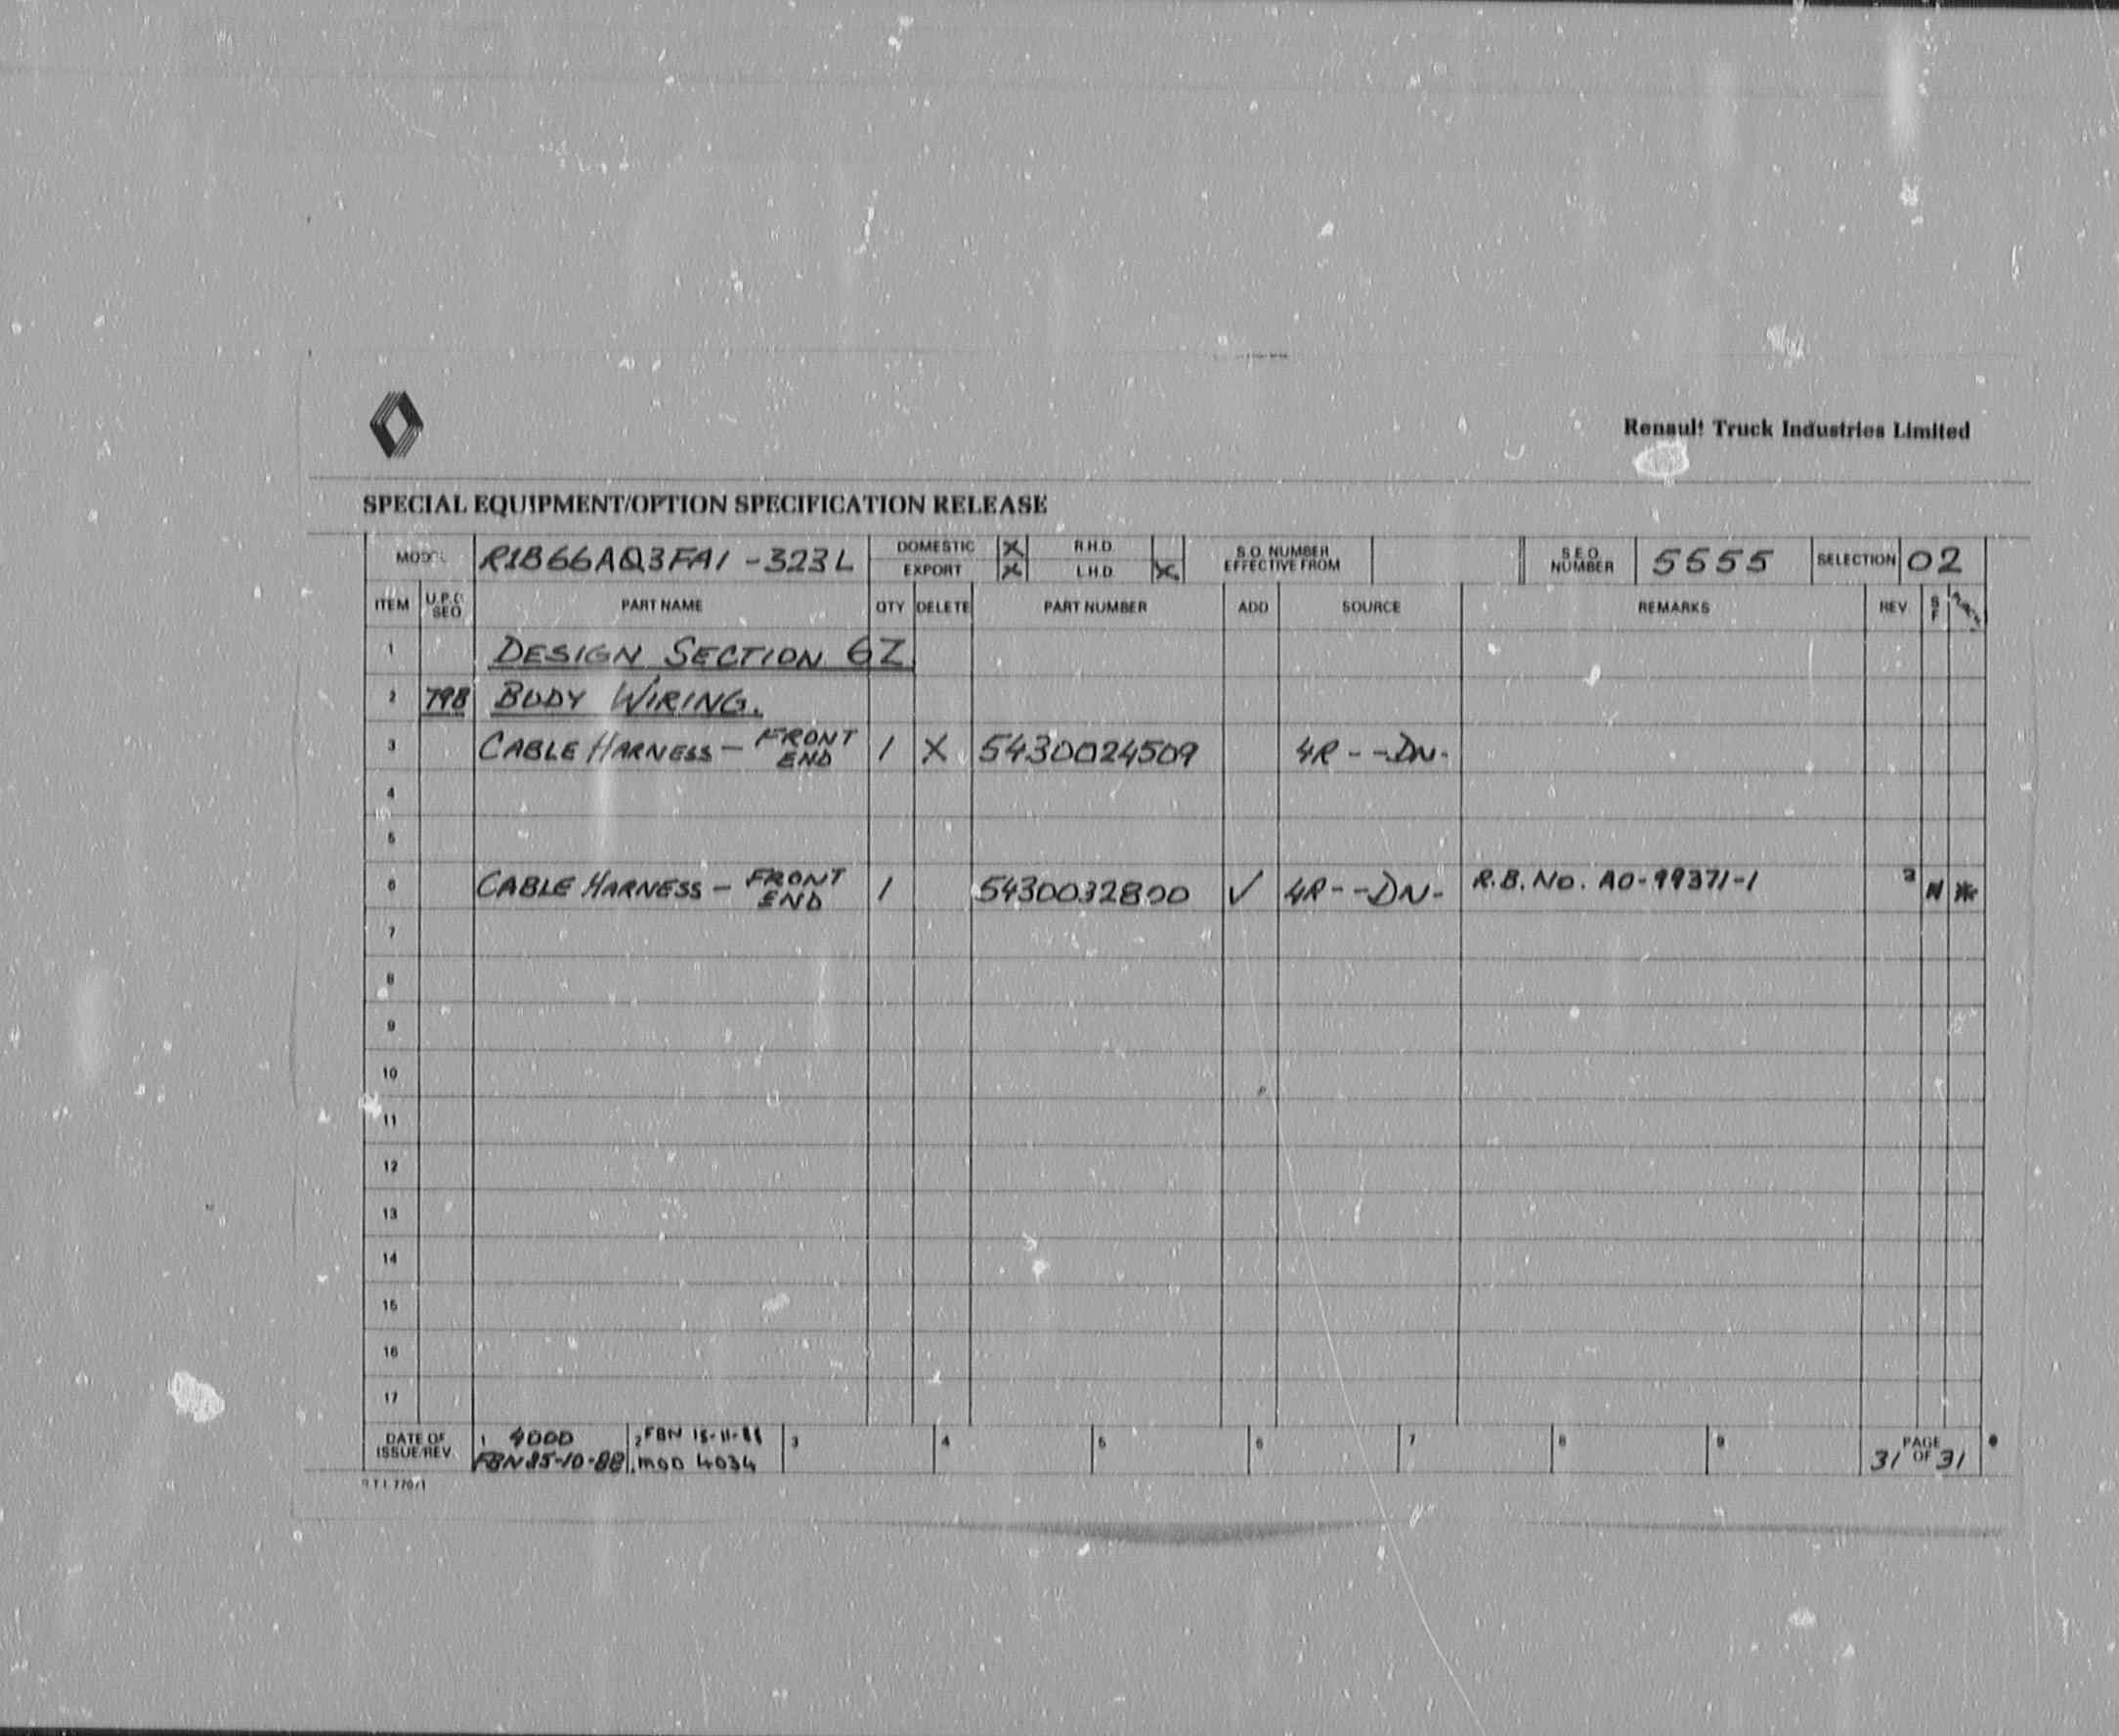 Renault Truck Industries Limited
SPECIAL EQUIPMENT/OPTION SPECIFICATION RELEASE
MODEL R1B66AQ3FA1 - 323L DOMESTIC X R.H.D. S.O. NUMBER EFFECTIVE FROM S.E.O. NUMBER 5555 SELECTION 02
EXPORT X L.H.D. X
ITEM U.P.C. SEQ PART NAME QTY DELETE PART NUMBER ADD SOURCE REMARKS REV S F
1 DESIGN SECTION 6Z
2 798 BODY WIRING.
3 CABLE HARNESS - FRONT END 1 X 5430024509 4R - - DN -
4
5
6 CABLE HARNESS - FRONT END 1 5430032800 ✓ 4R - - DN - R.B. NO. AO-99371-1 2 N *
7
8
9
10
11
12
13
14
15
16
17
DATE OF ISSUE/REV. 1 4000 2 FBN 3 4 5 6 7 8 9 PAGE
FBN 25-10-88 MOD 4034 31 OF 31
R.T.I. 770/1